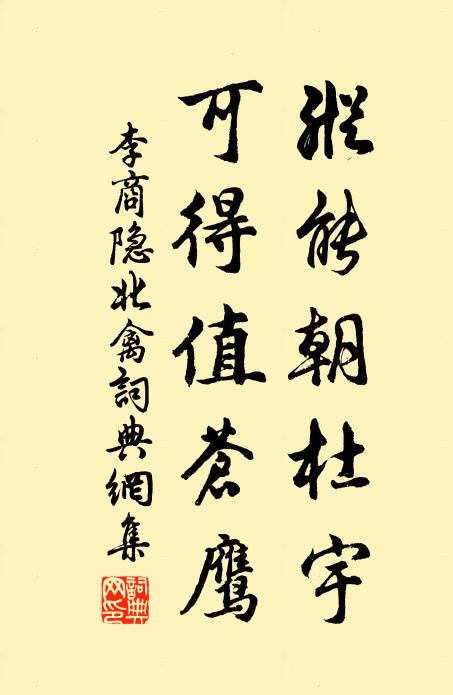 縱能朝杜宇
可得值蒼鷹
李商隐北禽詞典網集